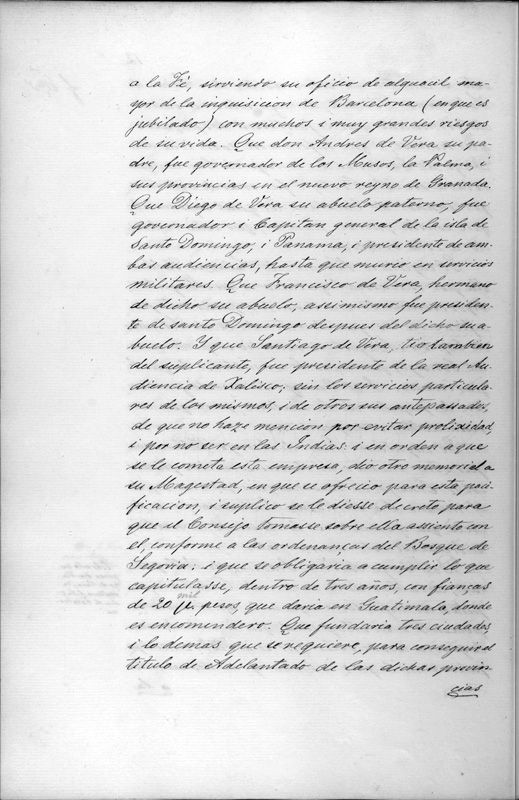 a la Fé, sirviendo su oficio de alguacil ma-
yor de la inquisicion de Barcelona (en que es
jubilado) con muchos i muy grandes riesgos
de su vida. Que don Andres de Vera su pa-
dre, fue governador de los Musos, la Palma, i
sus provincias en el nuevo reyno de Granada.
Que Diego de Vera su abuelo paterno, fue
governador i Capitan general de la isla de
Santo Domingo, i Panama, i presidente de am-
bas audiencias, hasta que murio en servicios
militares. Que Francisco de Vera, hermano
de dicho su abuelo, assimismo fue presiden-
te de santo Domingo despues del dicho su a-
buelo. Y que Santiago de Vera, tio tambien
del suplicante, fue presidente de la real Au-
diencia de Xalisco; sin los servicios particula-
res de los mismos, i de otros sus antepassados,
de que no haze mencion por evitar prolixidad,
i por no ser en las Indias: i en orden a que
se le cometa esta empresa, dio otro memorial a
su Magestad, en que se ofrecio para esta paci-
ficacion, i suplico se le diesse decreto para
que el Consejo tomasse sobre ella assiento con
el, conforme a las ordenanças del Bosque de
Segovia; i que se obligaria a cumplir lo que
capitulasse, dentro de tres años, con fianças
de 20 mil pesos, que daria en Guatimala, donde
es encomendero. Que fundaria tres ciudades,
i lo demas que se requiere, para conseguir el
titulo de Adelantado de las dichas provin-
cias